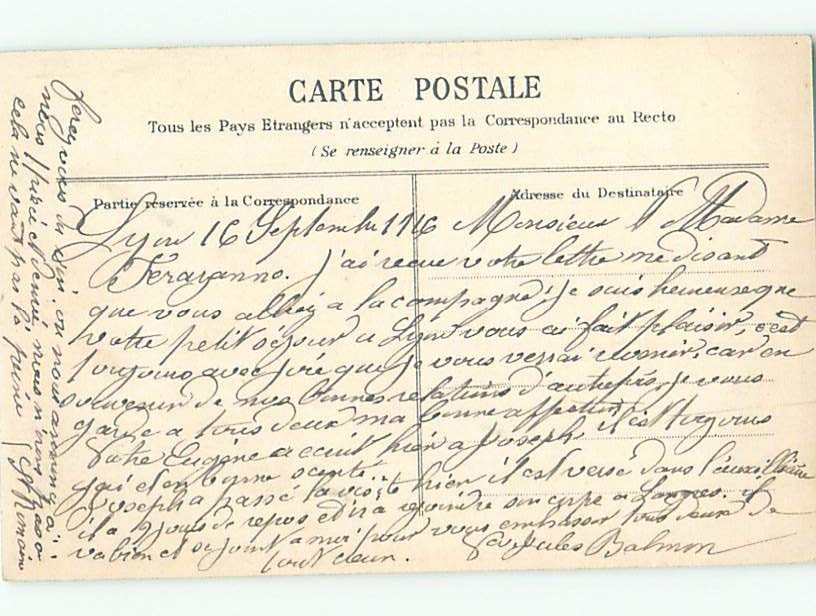 CARTE POSTALE
Tous les Pays Etrangers n'acceptent pas la Correspondance au Recto
(Se renseigner à la Poste)
Partie réservée à la Correspondance
Adresse du Destinataire
Lyon 16 Septembre 1916 Monsieur Madame
Ferazanno. j'ai recue votre lettre me disant
que vous allez a la campagne, je suis heureuse que
votre petit séjour a Lyon vous ai fait plaisir, c'est
toujours avec joie que je vous verrai revenir, car en
souvenir de nos bonnes relations d'autrefois, je vous
garde a tous deux ma bonne affection
Votre Eugène a ecrit hier a Joseph, il est toujours
gai et en bonne santé
Joseph a passé la visite hier il est versé dans l'auxilliaire
il a 9 jours de repos et ira rejoindre son corps a Langres. il
va bien et se joint a moi pour vous embrasser tous deux de
tout cœur.
Jules Balmon
nous
cela ne vaut pas la peine